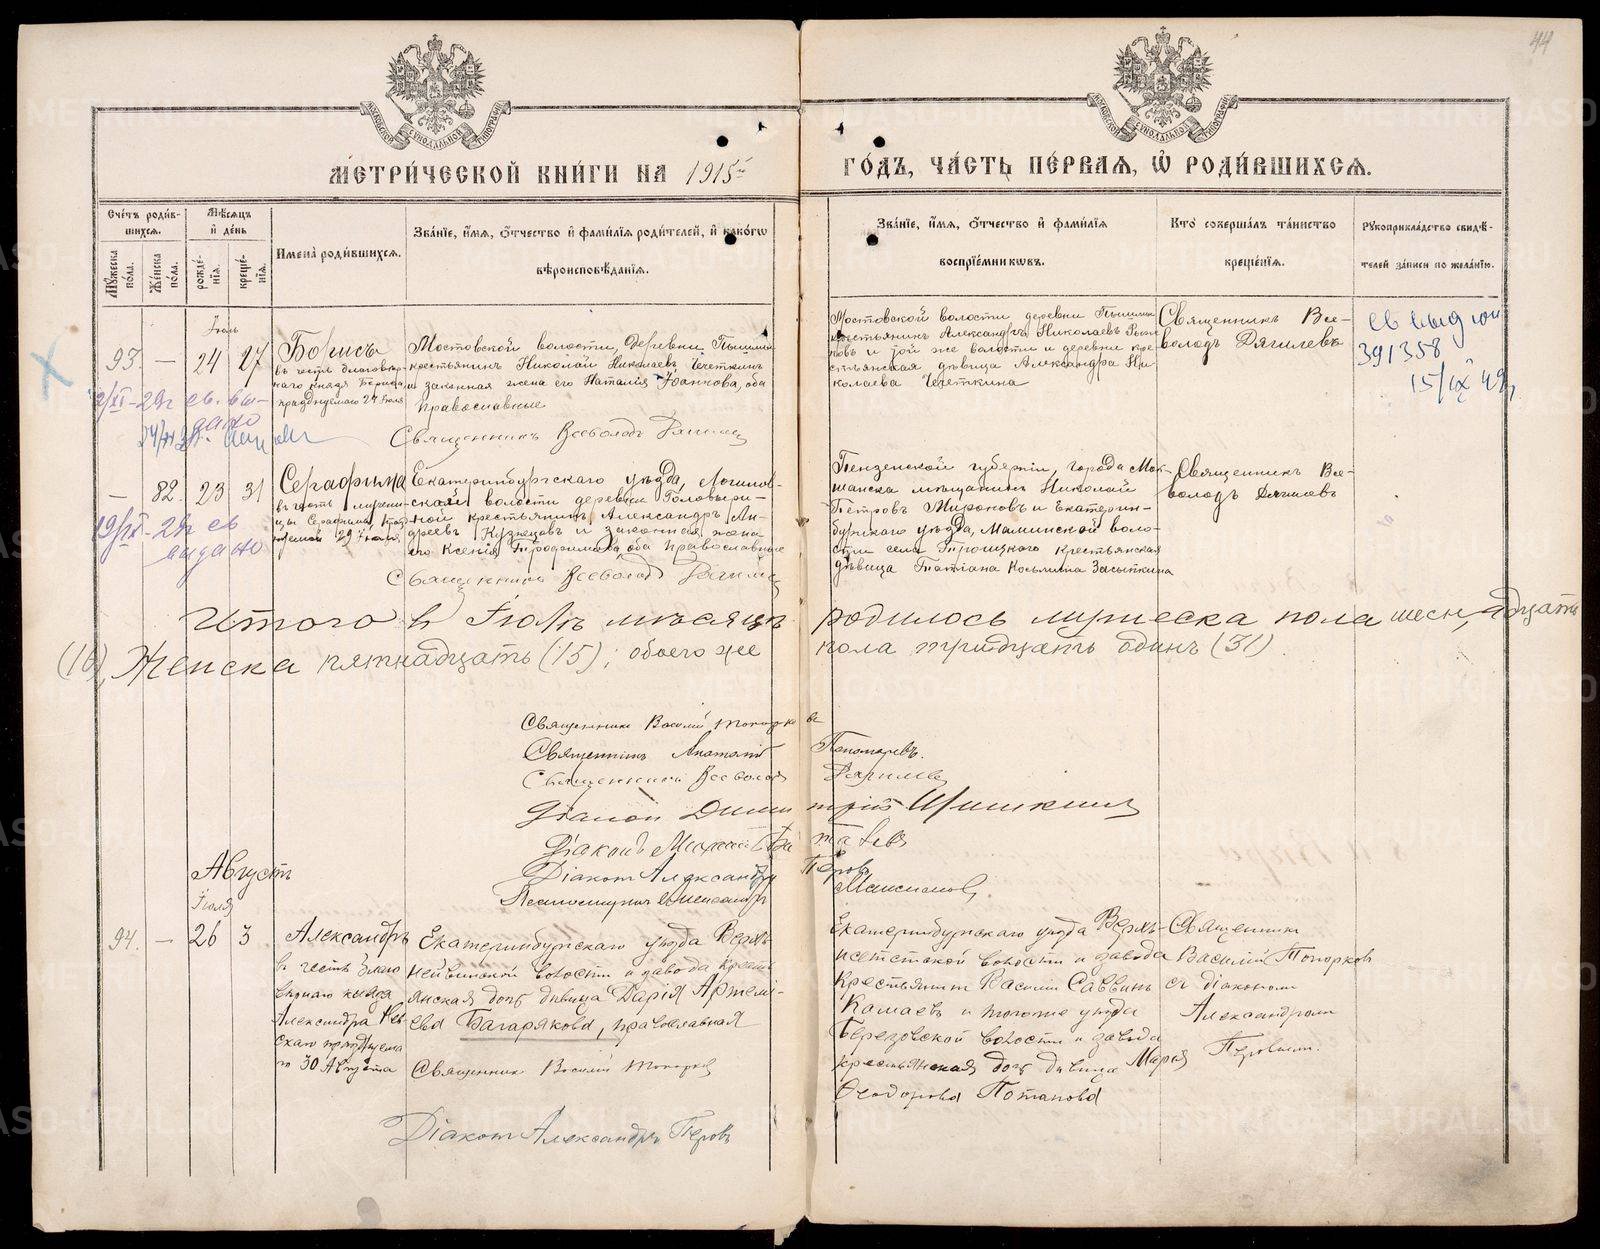 44
МЕТРИЧЕСКОЙ КНИГИ НА 1915й ГОДЪ, ЧАСТЬ ПЕРВАЯ, Ѡ РОДИВШИХСЯ.
Счетъ родив-
шихся.
Мужеска пола.
Женска пола.
Мѣсяцъ и день
рожде-
нія.
креще-
нія.
Имена родившихся.
Званіе, имя, отчество и фамилія родителей, и какогѡ
вѣроисповѣданія.
Званіе, имя, отчество и фамилія
воспріемникѡвъ.
Кто совершалъ таинство
крещенія.
Рукоприкладство свидѣ-
телей записи по желанію.
Іюль
93. — 24 27
Борисъ
въ честь благовѣр-
наго князя Бориса,
празднуемаго 24 Іюля
Мостовской волости, деревни Пышмы
крестьянинъ Николай Николаевъ Чечеткинъ
и законная жена его Наталія, оба
православные
Священникъ Всеволодъ Дягилевъ
Мостовской волости деревни Пышмы
крестьянинъ Александръ Николаевъ
и той же волости и деревни кре-
стьянская дѣвица Александра Ни-
колаева Чечеткина
Священникъ Все-
володъ Дягилевъ
391358
15/IX 49
— 82. 23 31
Серафима
въ честь мучени-
цы Серафимы, праз-
днуемой 29 Іюля
Екатеринбургскаго уѣзда, Логинов-
ской волости деревни
крестьянинъ Александръ Ан-
дреевъ Кузнецовъ и законная жена
его Ксенія Трофимова, оба православные
Священникъ Всеволодъ Дягилевъ
Пензенской губерніи, города Мок-
шанска мѣщанинъ Николай
Петровъ Мироновъ и Екатерин-
бургскаго уѣзда, Маминской воло-
сти села Троицкаго крестьянская
дѣвица Татіана Козьмина Засыпкина
Священникъ Все-
володъ Дягилевъ
19/IX - 29г св
выдано
Итого въ Іюлѣ мѣсяцѣ родилось мужеска пола шестнадцать
(16), женска пятнадцать (15); обоего же пола тридцать одинъ (31)
Священникъ Василій Топорковъ
Священникъ Анатолій Пономаревъ.
Священникъ Всеволодъ Дягилевъ
Діаконъ Димитрій Шишкинъ
Діаконъ Михаил
Діаконъ Александръ Перовъ
Псаломщикъ Александръ Максимовъ
Августъ
Іюля
94. — 26 3
Александръ
въ честь благо
вѣрнаго князя
Александра Нев
скаго празднуема
го 30 Августа
Екатеринбургскаго уѣзда Верхъ-
нейвинской волости и завода крестъ
янская дочь дѣвица Дарія Артемі-
ева Багарякова, православная
Священникъ Василій Топорковъ
Діаконъ Александръ Перовъ
Екатеринбургскаго уѣзда Верхъ-
исетской волости и завода
крестьянинъ Василій Саввинъ
и того же уѣзда
Березовской волости и завода
крестьянская дочь дѣвица Марія
Ѳеодорова Потапова
Священникъ
Василій Топорковъ
съ діакономъ
Александромъ
Перовымъ.